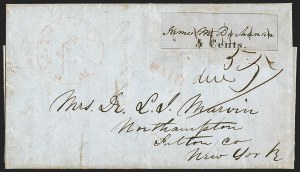 James M. Buchanan
5 Cents.
Mrs. Dr. L. S. Marvin
Northampton
Fulton Co
New York